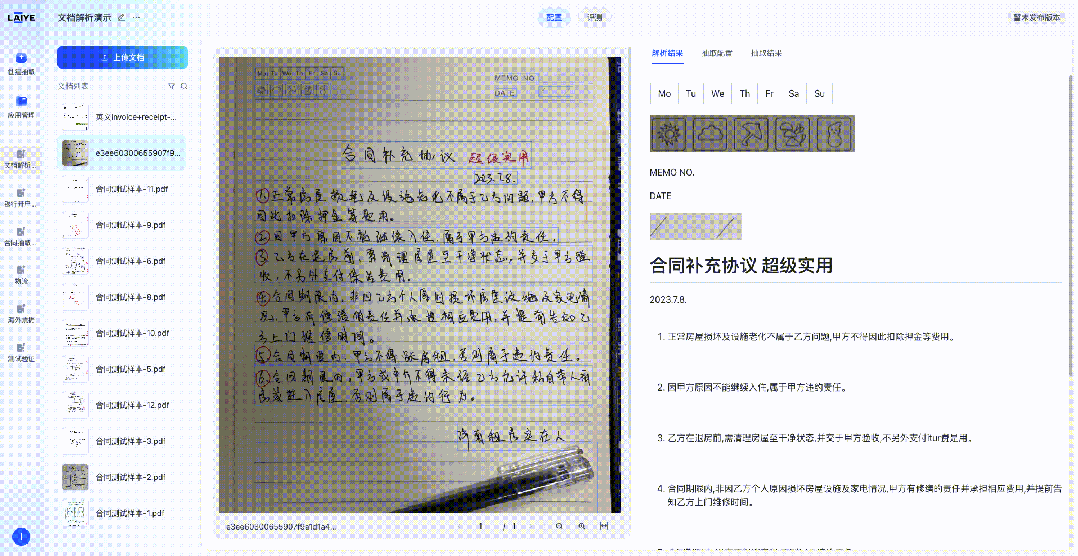 LAIYE
文档解析演示
配置
评测
暂未发布版本
创建抽取
应用管理
文档解析...
银行开户...
合同抽取
物流
海外流程
测试验证
上传文档
文档列表
英文invoice+receipt-...
e3ee60300655907f9...
合同测试样本-11.pdf
合同测试样本-9.pdf
合同测试样本-6.pdf
合同测试样本-8.pdf
合同测试样本-10.pdf
合同测试样本-5.pdf
合同测试样本-12.pdf
合同测试样本-3.pdf
合同测试样本-2.pdf
合同测试样本-1.pdf
Mo Tu We Th Fr Sa Su
MEMO NO.
DATE
合同补充协议 超级实用
2023.7.8.
①正常房屋损耗及设施老化不属于乙方问题,甲方不得
因此扣除押金等费用。
②因甲方原因不能继续入住,属于甲方违约责任。
③乙方在退房前,需清理房屋至干净状态,并交于甲方验
收,不另外支付保洁费用。
④合同期限内,非因乙方个人原因损坏房屋设施及家电情
况,甲方有修缮的责任并承担相应费用,并提前告知乙
方上门维修时间。
⑤合同期限内,甲方不得涨房租,否则属于违约责任。
⑥合同期限内,甲方或中介不得未经乙方允许私自带人看
房或进入房屋,否则属于违约行为。
e3ee60300655907f9a1d1a4...
1 / 1
解析结果
抽取配置
抽取结果
Mo Tu We Th Fr Sa Su
MEMO NO.
DATE
合同补充协议 超级实用
2023.7.8.
1. 正常房屋损坏及设施老化不属于乙方问题,甲方不得因此扣除押金等费用。
2. 因甲方原因不能继续入住,属于甲方违约责任。
3. 乙方在退房前,需清理房屋至干净状态,并交于甲方验收,不另外支付itur费是用。
4. 合同期限内,非因乙方个人原因损坏房屋设施及家电情况,甲方有修缮的责任并承担相应费用,并提前告
知乙方上门维修时间。